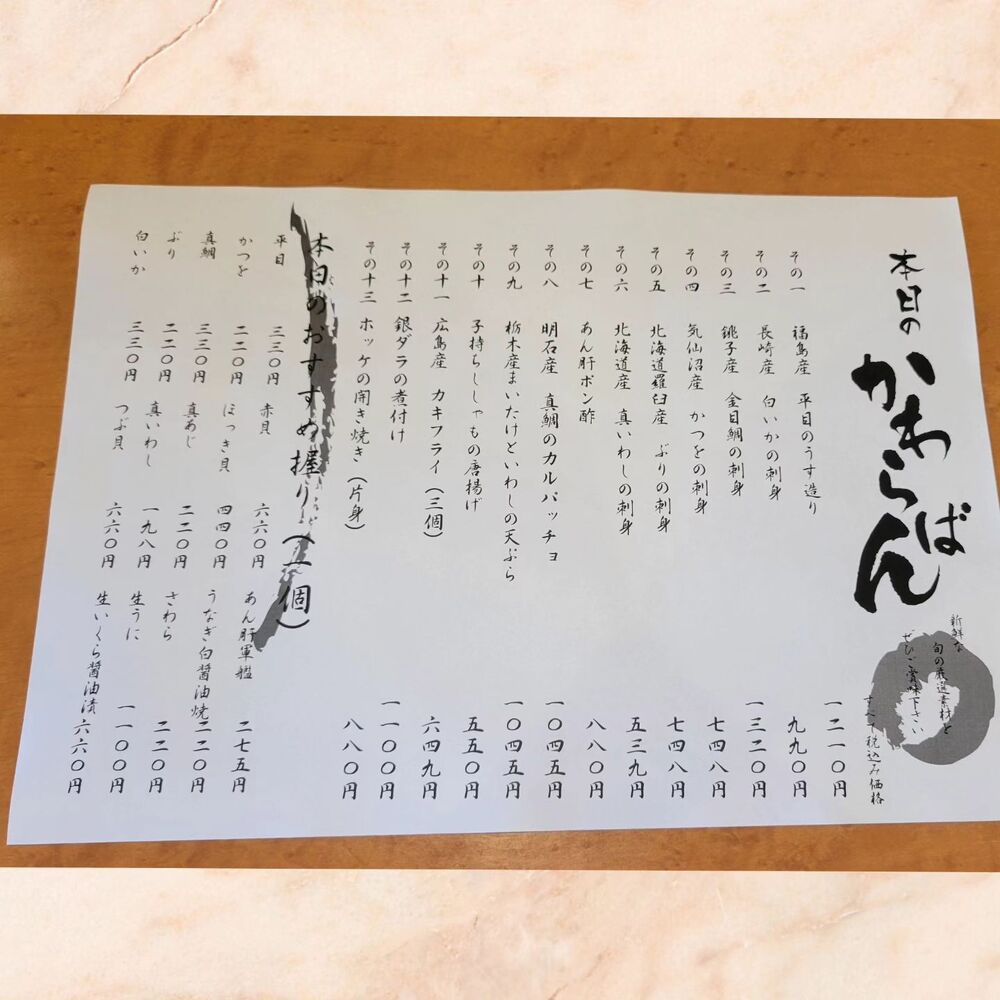 本日の
かわらばん
新鮮な
旬の厳選素材を
ぜひご賞味下さい
すべて税込み価格
その一 福島産 平目のうす造り 一二一〇円
その二 長崎産 白いかの刺身 九九〇円
その三 銚子産 金目鯛の刺身 一三二〇円
その四 気仙沼産 かつをの刺身 七四八円
その五 北海道羅臼産 ぶりの刺身 七四八円
その六 北海道産 真いわしの刺身 五三九円
その七 あん肝ポン酢 八八〇円
その八 明石産 真鯛のカルパッチョ 一〇四五円
その九 栃木産まいたけといわしの天ぷら 一〇四五円
その十 子持ちししゃもの唐揚げ 五五〇円
その十一 広島産 カキフライ(三個) 六四九円
その十二 銀ダラの煮付け 一一〇〇円
その十三 ホッケの開き焼き(片身) 八八〇円
本日のおすすめ握り(一個)
平目 三三〇円 赤貝 六六〇円 あん肝軍艦 二七五円
かつを 二二〇円 ほっき貝 四四〇円 うなぎ白醤油焼 二二〇円
真鯛 三三〇円 真あじ 二二〇円 さわら 二二〇円
ぶり 二二〇円 真いわし 一九八円 生うに 一一〇〇円
白いか 三三〇円 つぶ貝 六六〇円 生いくら醤油漬 六六〇円